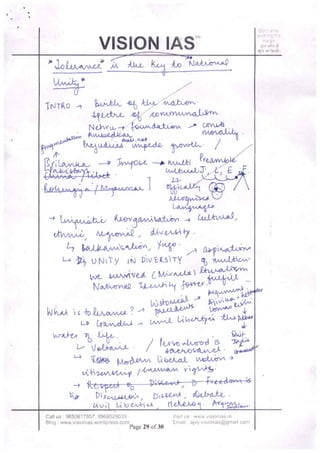 VISION IAS™
"Tolerance" is the key to "National
Unity"
INTRO → Birth of the nation
Spectre of communalism
Nehru → foundation → consti
Ambedkar morality
Prejudices impede growth /
Fragmentation
Srilanka → Impose → multi Preamble
Pakistan cultural J, L, E, F
Rohingya / Myanmar
22
officially
recognised
Languages
→ Linguistic Reorganisation → cultural,
ethnic, regional, diversity.
↳ Balkanisation, Yugo. → aspirations
↳ UNITY IN DIVERSITY of multicul-
we survived (Miracle) turalism
National Identity foster. fulfill
What is tolerance? → historical precedents
↳ Gandhi → civil Liberty is the
water of life.
↳ Voltaire / Personhood is
sacrosanct.
↳ Modern liberal notion →
citizenship / human rights
→ Respect of Dissent, Freedom is
↳ Discussion, Dissent, debate.
Civil Liberties, Heterog.
Call us : 9650617807, 9968029039
Visit us : www.visionias.in
Blog : www.visionias.wordpress.com
Page 29 of 30